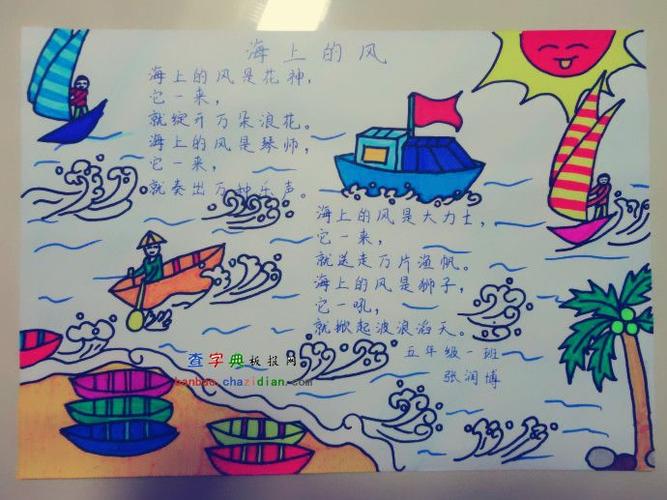 海上的风
海上的风是花神，
它一来，
就绽开万朵浪花。
海上的风是琴师，
它一来，
就奏出万种乐声。
海上的风是大力士，
它一来，
就送走万片渔帆。
海上的风是狮子，
它一吼，
就掀起波浪滔天。
五年级一班
张润博
查字典板报网
banbao.chazidian.com